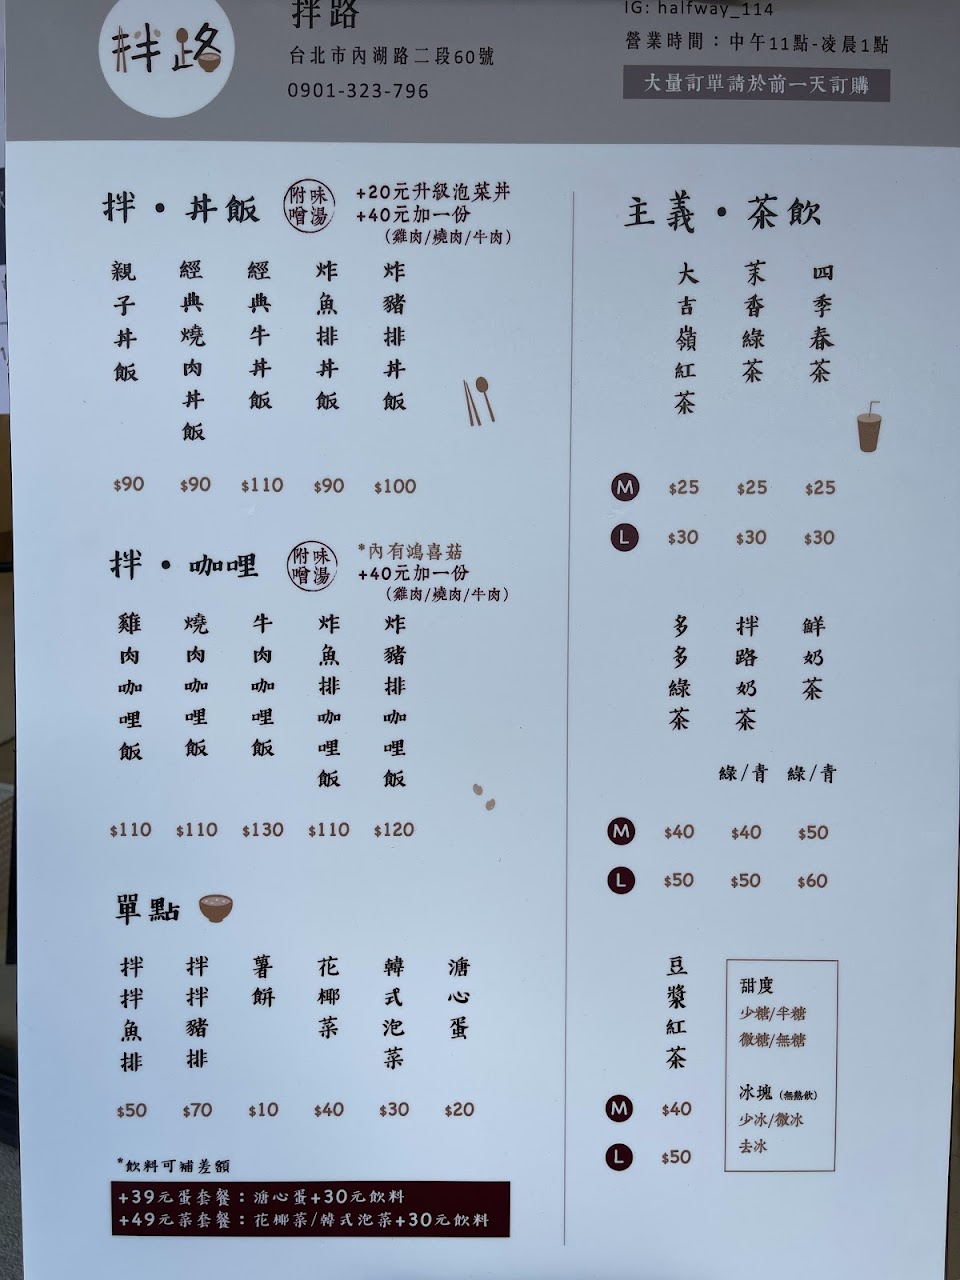 拌路
拌路
台北市內湖路二段60號
0901-323-796
IG: halfway_114
營業時間：中午11點-凌晨1點
大量訂單請於前一天訂購
拌・丼飯
附味噌湯
+20元升級泡菜丼
+40元加一份
（雞肉/燒肉/牛肉）
親子丼飯
經典燒肉丼飯
經典牛丼飯
炸魚排丼飯
炸豬排丼飯
$90 $90 $110 $90 $100
拌・咖哩
附味噌湯
*內有鴻喜菇
+40元加一份
（雞肉/燒肉/牛肉）
雞肉咖哩飯
燒肉咖哩飯
牛肉咖哩飯
炸魚排咖哩飯
炸豬排咖哩飯
$110 $110 $130 $110 $120
單點
拌拌魚排
拌拌豬排
薯餅
花椰菜
韓式泡菜
溏心蛋
$50 $70 $10 $40 $30 $20
*飲料可補差額
+39元蛋套餐：溏心蛋+30元飲料
+49元菜套餐：花椰菜/韓式泡菜+30元飲料
主義・茶飲
大吉嶺紅茶
茉香綠茶
四季春茶
M $25 $25 $25
L $30 $30 $30
多多綠茶
拌路奶茶
鮮奶茶
綠/青 綠/青
M $40 $40 $50
L $50 $50 $60
豆漿紅茶
M $40
L $50
甜度
少糖/半糖
微糖/無糖
冰塊（無熱飲）
少冰/微冰
去冰